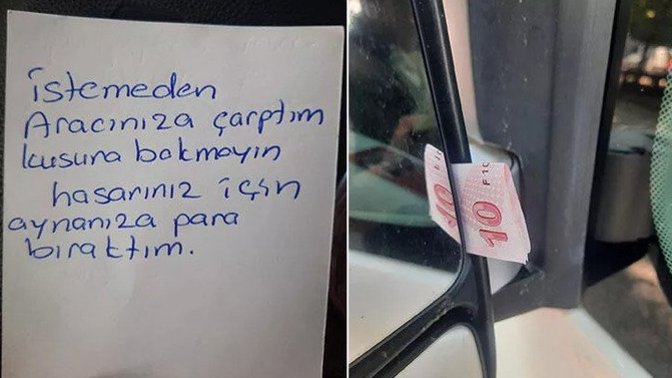 istemeden
Aracınıza çarptım
kusura bakmayın
hasarınız için
aynanıza para
bıraktım.
10
10
F 10